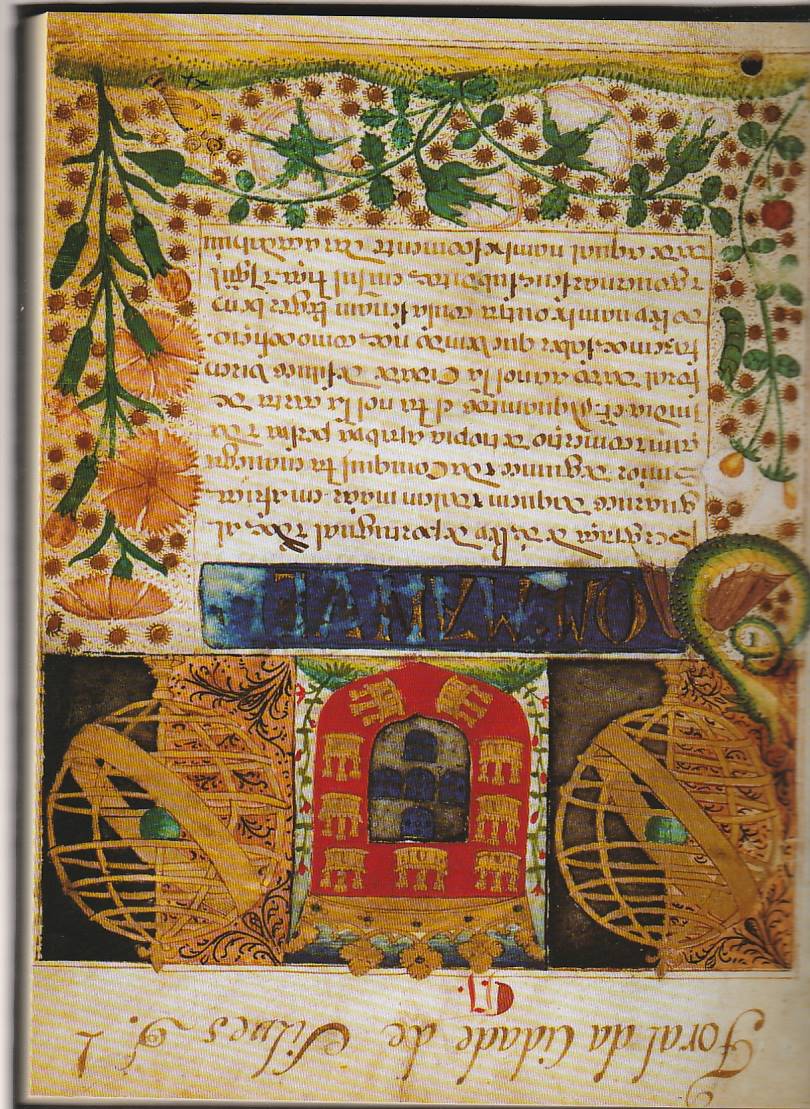 Foral da Cidade de Silves
DOM MANVEL
Per graça de ds Rey de portugual ⁊ dos al
guarues daquem ⁊ dalem maar em africa
Senior de guinee ⁊ da Comquista enauega
cam ⁊ comerçio de tiopia arabya persia ⁊ da
India etc Aquamtos esta nossa carta de
foral dado aa nossa Cidade de silues viren
fazemos saber que vemdo nos como ofiçio
do Rey nam he outra cousa senam Reger bem
⁊ gouernar seus subditos em Justiça ⁊ Igual
dade aqual nam he soomente dar acada hūu